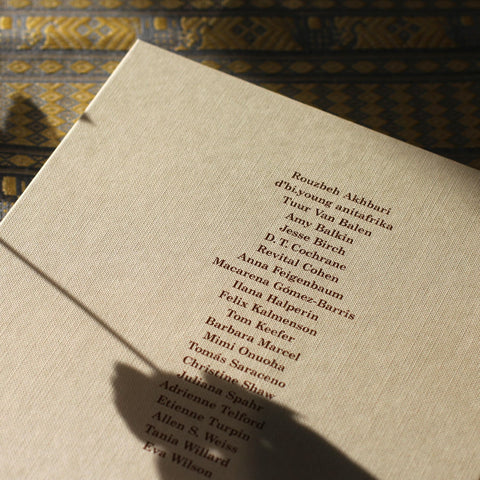 Rouzbeh Akhbari
d'bi.young anitafrika
Tuur Van Balen
Amy Balkin
Jesse Birch
D. T. Cochrane
Revital Cohen
Anna Feigenbaum
Macarena Gómez-Barris
Ilana Halperin
Felix Kalmenson
Tom Keefer
Barbara Marcel
Mimi Onuoha
Tomás Saraceno
Christine Shaw
Juliana Spahr
Adrienne Telford
Etienne Turpin
Allen S. Weiss
Tania Willard
Eva Wilson